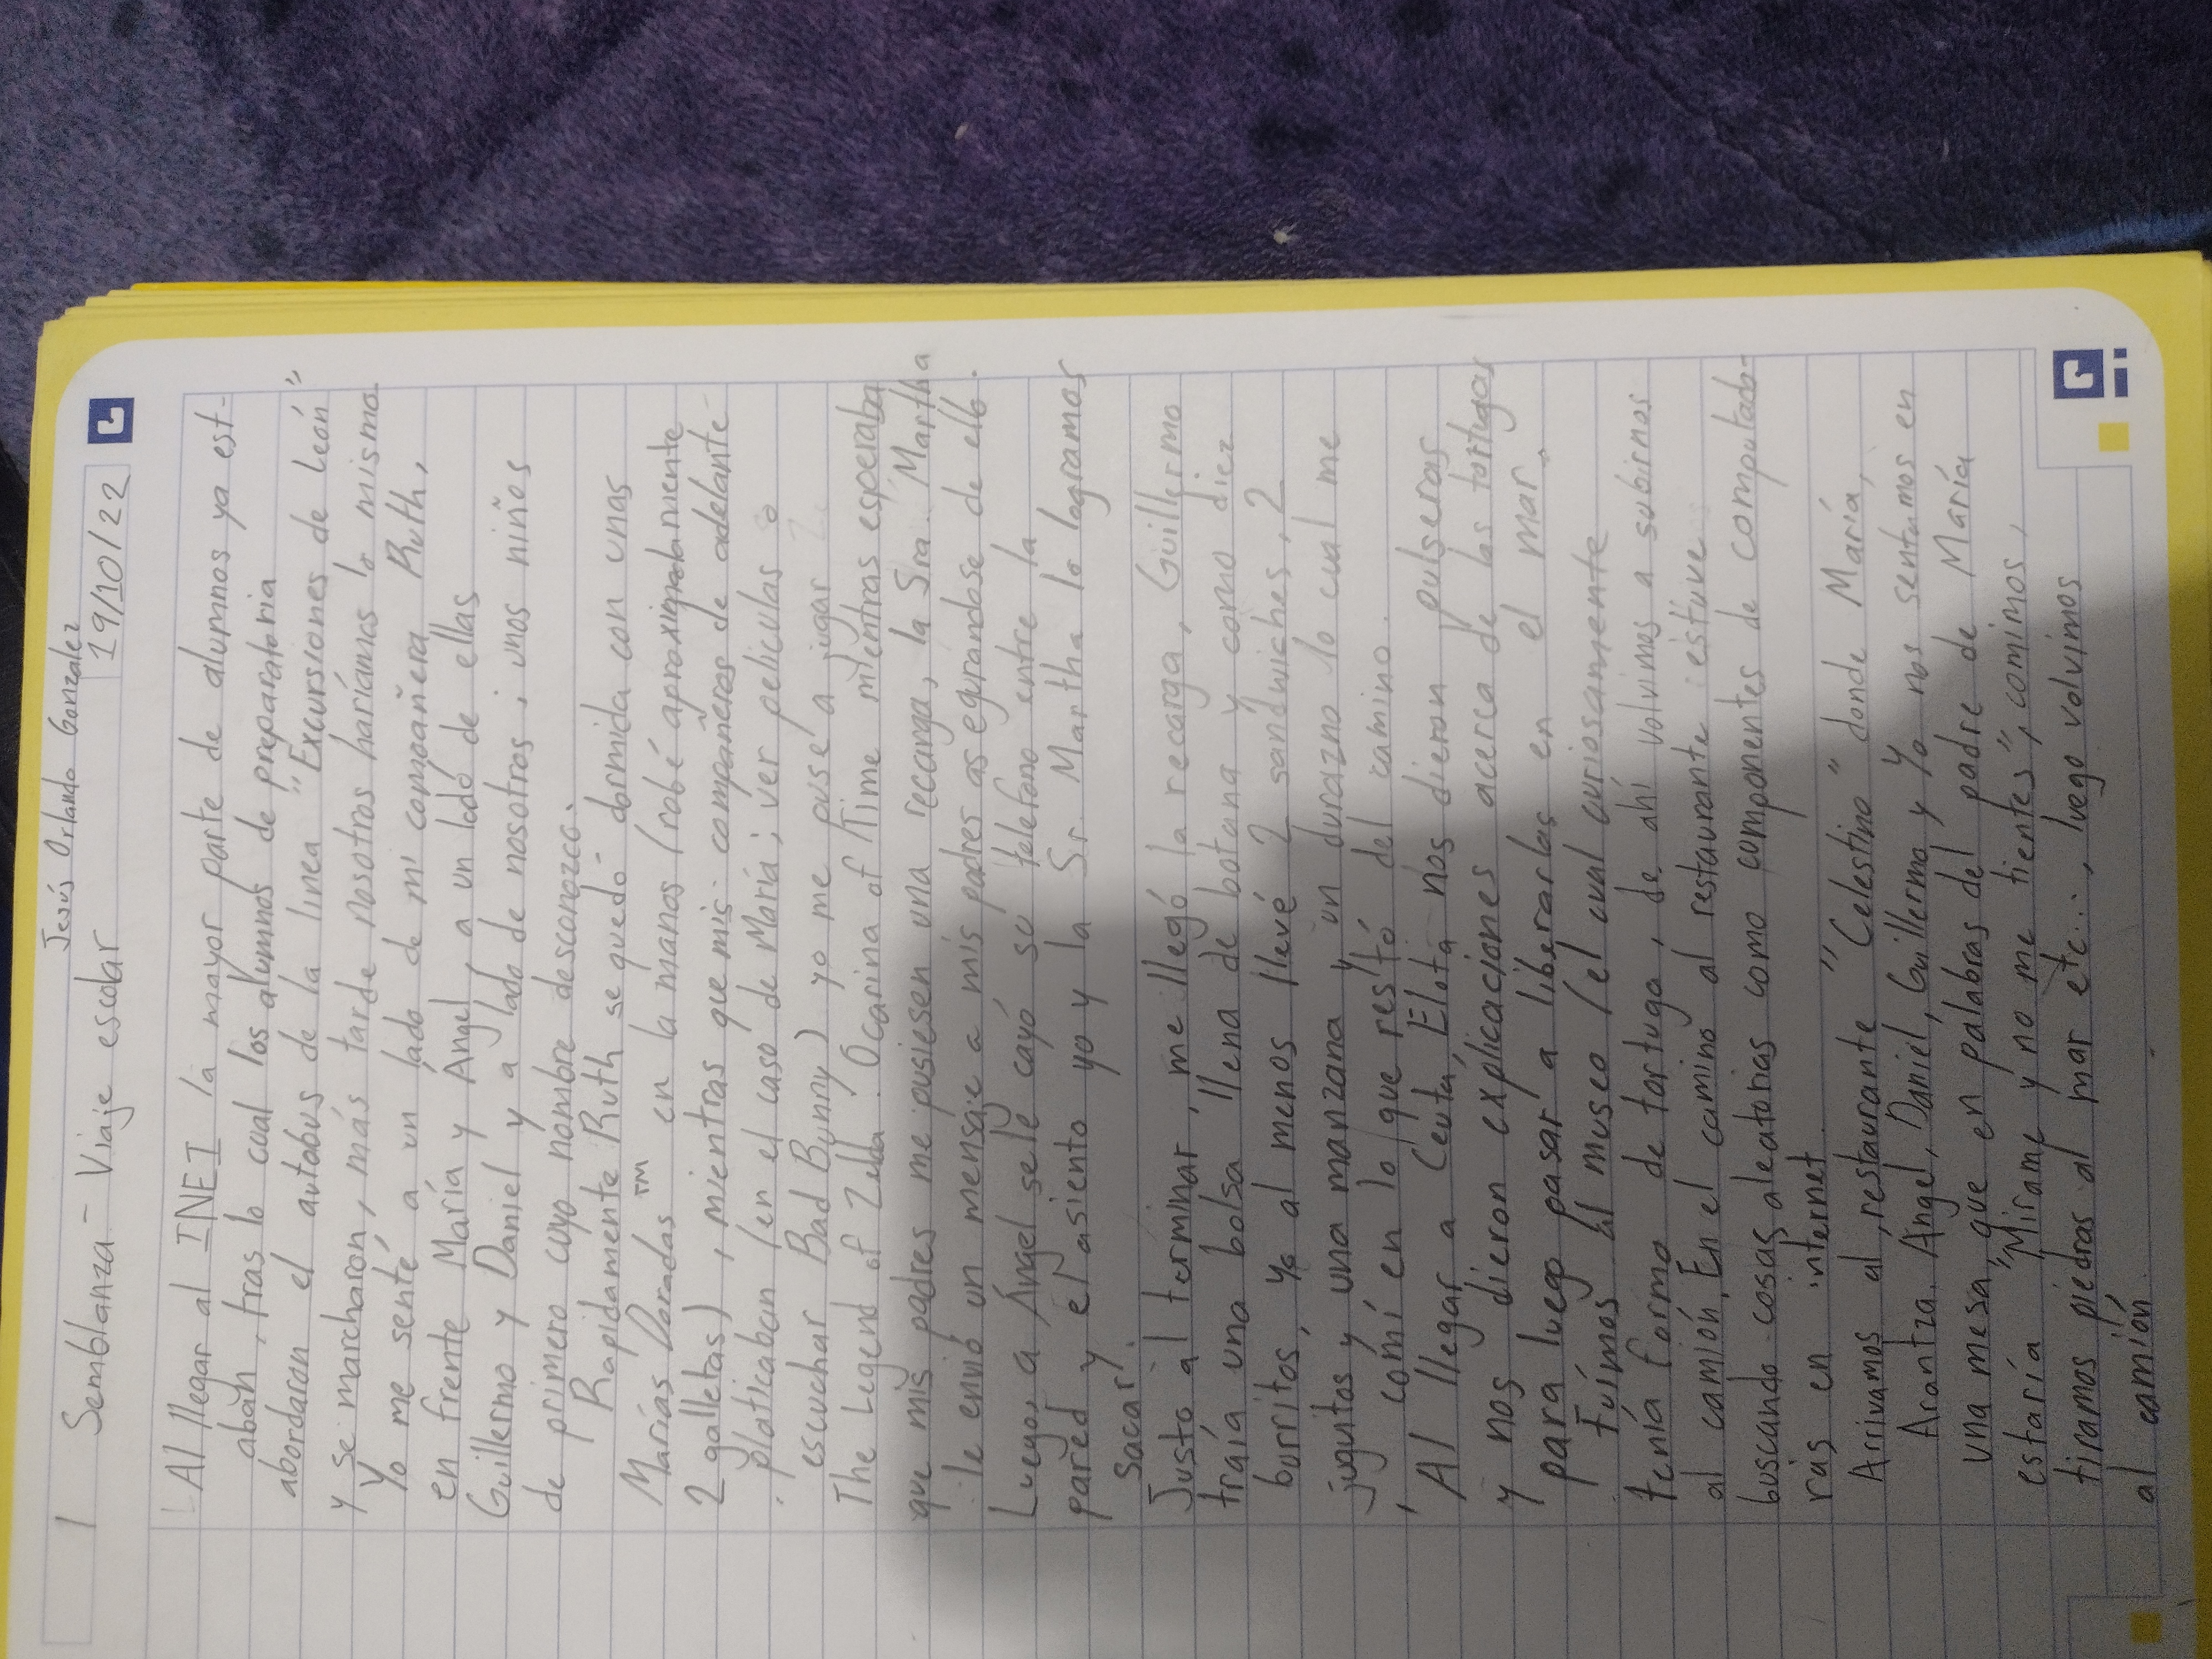 Jesús Orlando Gonzalez
1 Semblanza - Viaje escolar 19/10/22
Al llegar al INEI la mayor parte de alumnos ya est-
aban, tras lo cual los alumnos de preparatoria
abordaron el autobus de la linea "Excursiones de León"
y se marcharon, más tarde nosotros haríamos lo mismo
Yo me senté a un lado de mi compañera Ruth,
en frente María y Angel a un lado de ellas
Guillermo y Daniel y a lado de nosotros, unos niños
de primero cuyo nombre desconozco.
Rapidamente Ruth se quedó dormida con unas
Marías Doradas ™ en la manos (robé aproximadamente
2 galletas), mientras que mis compañeros de adelante
platicaban (en el caso de María; ver peliculas o
escuchar Bad Bunny) yo me puse a jugar
The Legend of Zelda: Ocarina of Time mientras esperaba
que mis padres me pusiesen una recarga, la Sra. Martha
le envió un mensaje a mis padres asegurandose de ello.
Luego a Ángel se le cayó su telefono entre la
pared y el asiento yo y la Sr. Martha lo logramos
sacar.
Justo al terminar, me llegó la recarga, Guillermo
traía una bolsa llena de botana y como diez
burritos, yo al menos llevé 2 sandwiches, 2
juguitos y una manzana y un durazno lo cual me
comí en lo que restó del camino.
Al llegar a Ceuta, Elota nos dieron pulseras
y nos dieron explicaciones acerca de las tortugas
para luego pasar a liberarlas en el mar.
Fuímos al museo (el cual curiosamente
tenía forma de tortuga, de ahí volvimos a subirnos
al camión. En el camino al restaurante estuve
buscando cosas aleatorias como componentes de computado-
ras en internet.
Arrivamos al restaurante "Celestino" donde María,
Arantza, Angel, Daniel, Guillermo y Yo nos sentamos en
una mesa que en palabras del padre de María
estaría "Mirame y no me tientes", comimos,
tiramos piedras al mar etc..., luego volvimos
al camión.